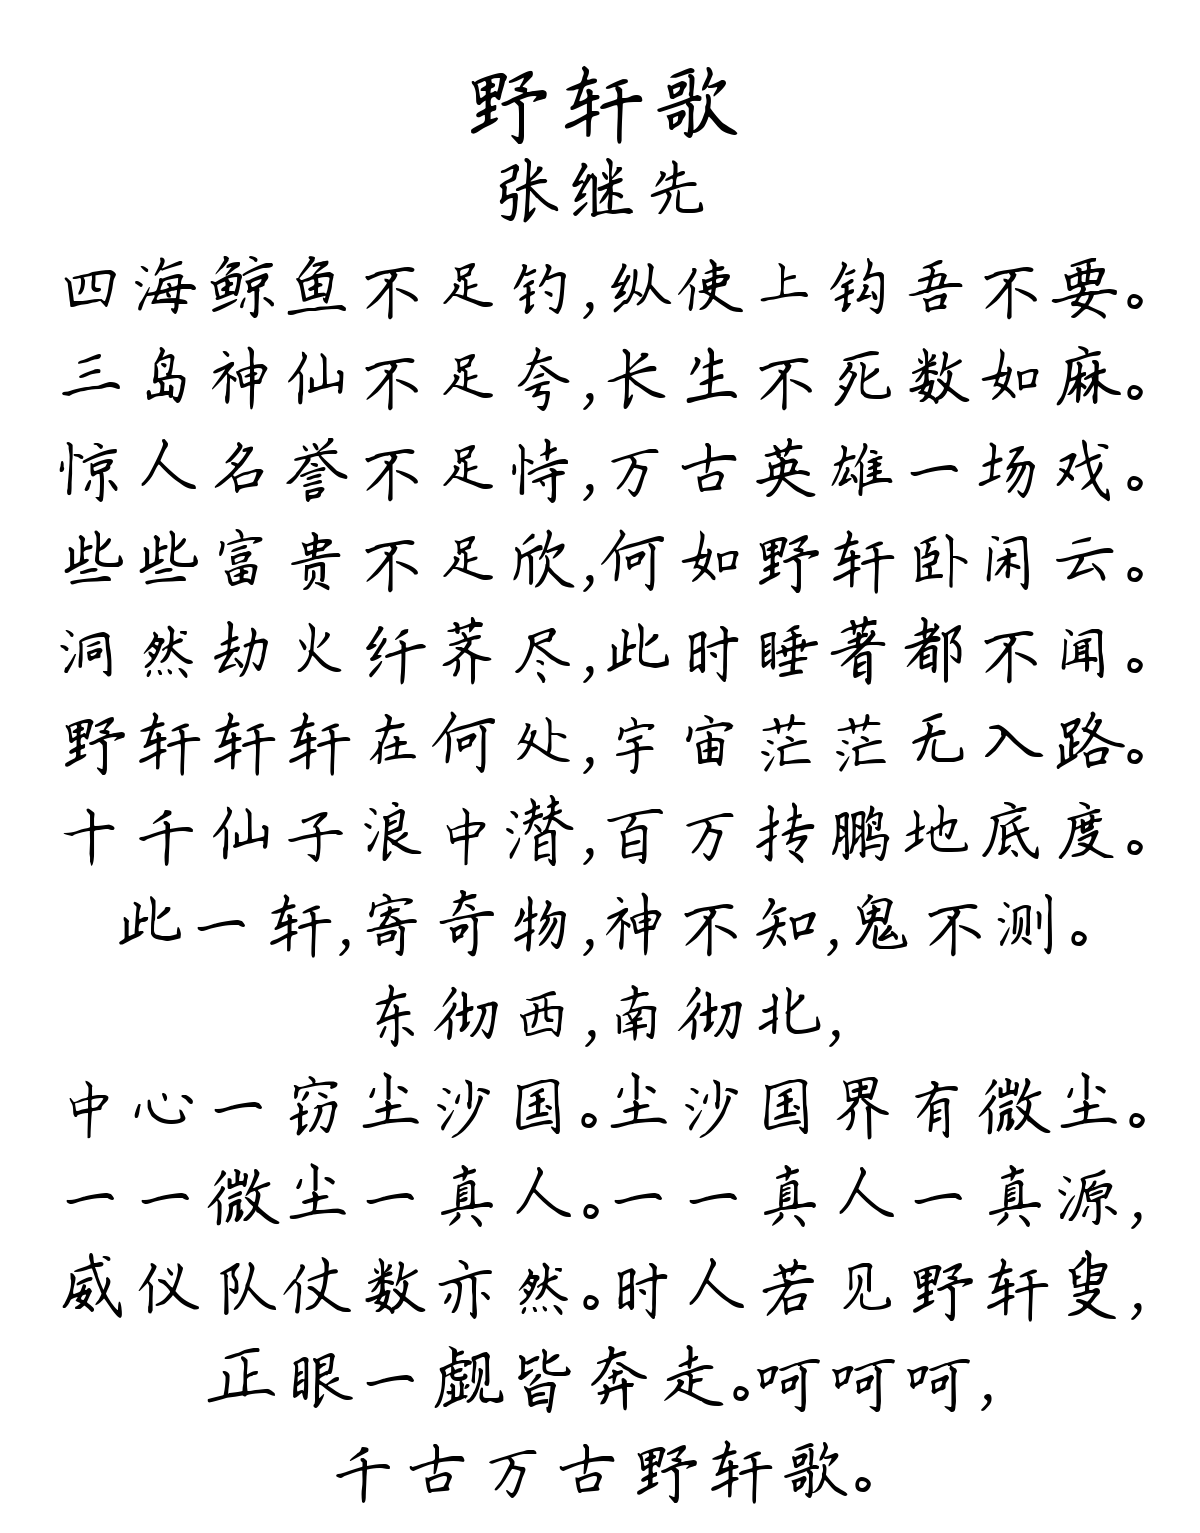 野轩歌
张继先
四海鲸鱼不足钓,纵使上钩吾不要。
三岛神仙不足夸,长生不死数如麻。
惊人名誉不足恃,万古英雄一场戏。
些些富贵不足欣,何如野轩卧闲云。
洞然劫火纤荞尽,此时睡著都不闻。
野轩轩轩在何处,宇宙茫茫无入路。
十千仙子浪中潜,百万抟鹏地底度。
此一轩,寄奇物,神不知,鬼不测。
东彻西,南彻北,
中心一窃尘沙国。尘沙国界有微尘。
一一微尘一真人。一一真人一真源,
威仪队仗数亦然。时人若见野轩叟,
正眼一觑皆奔走。呵呵呵,
千古万古野轩歌。